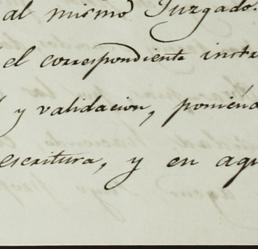 al mismo Juzgado.
el correspondiente instr
y validacion, poniénd
escritura, y en aqu